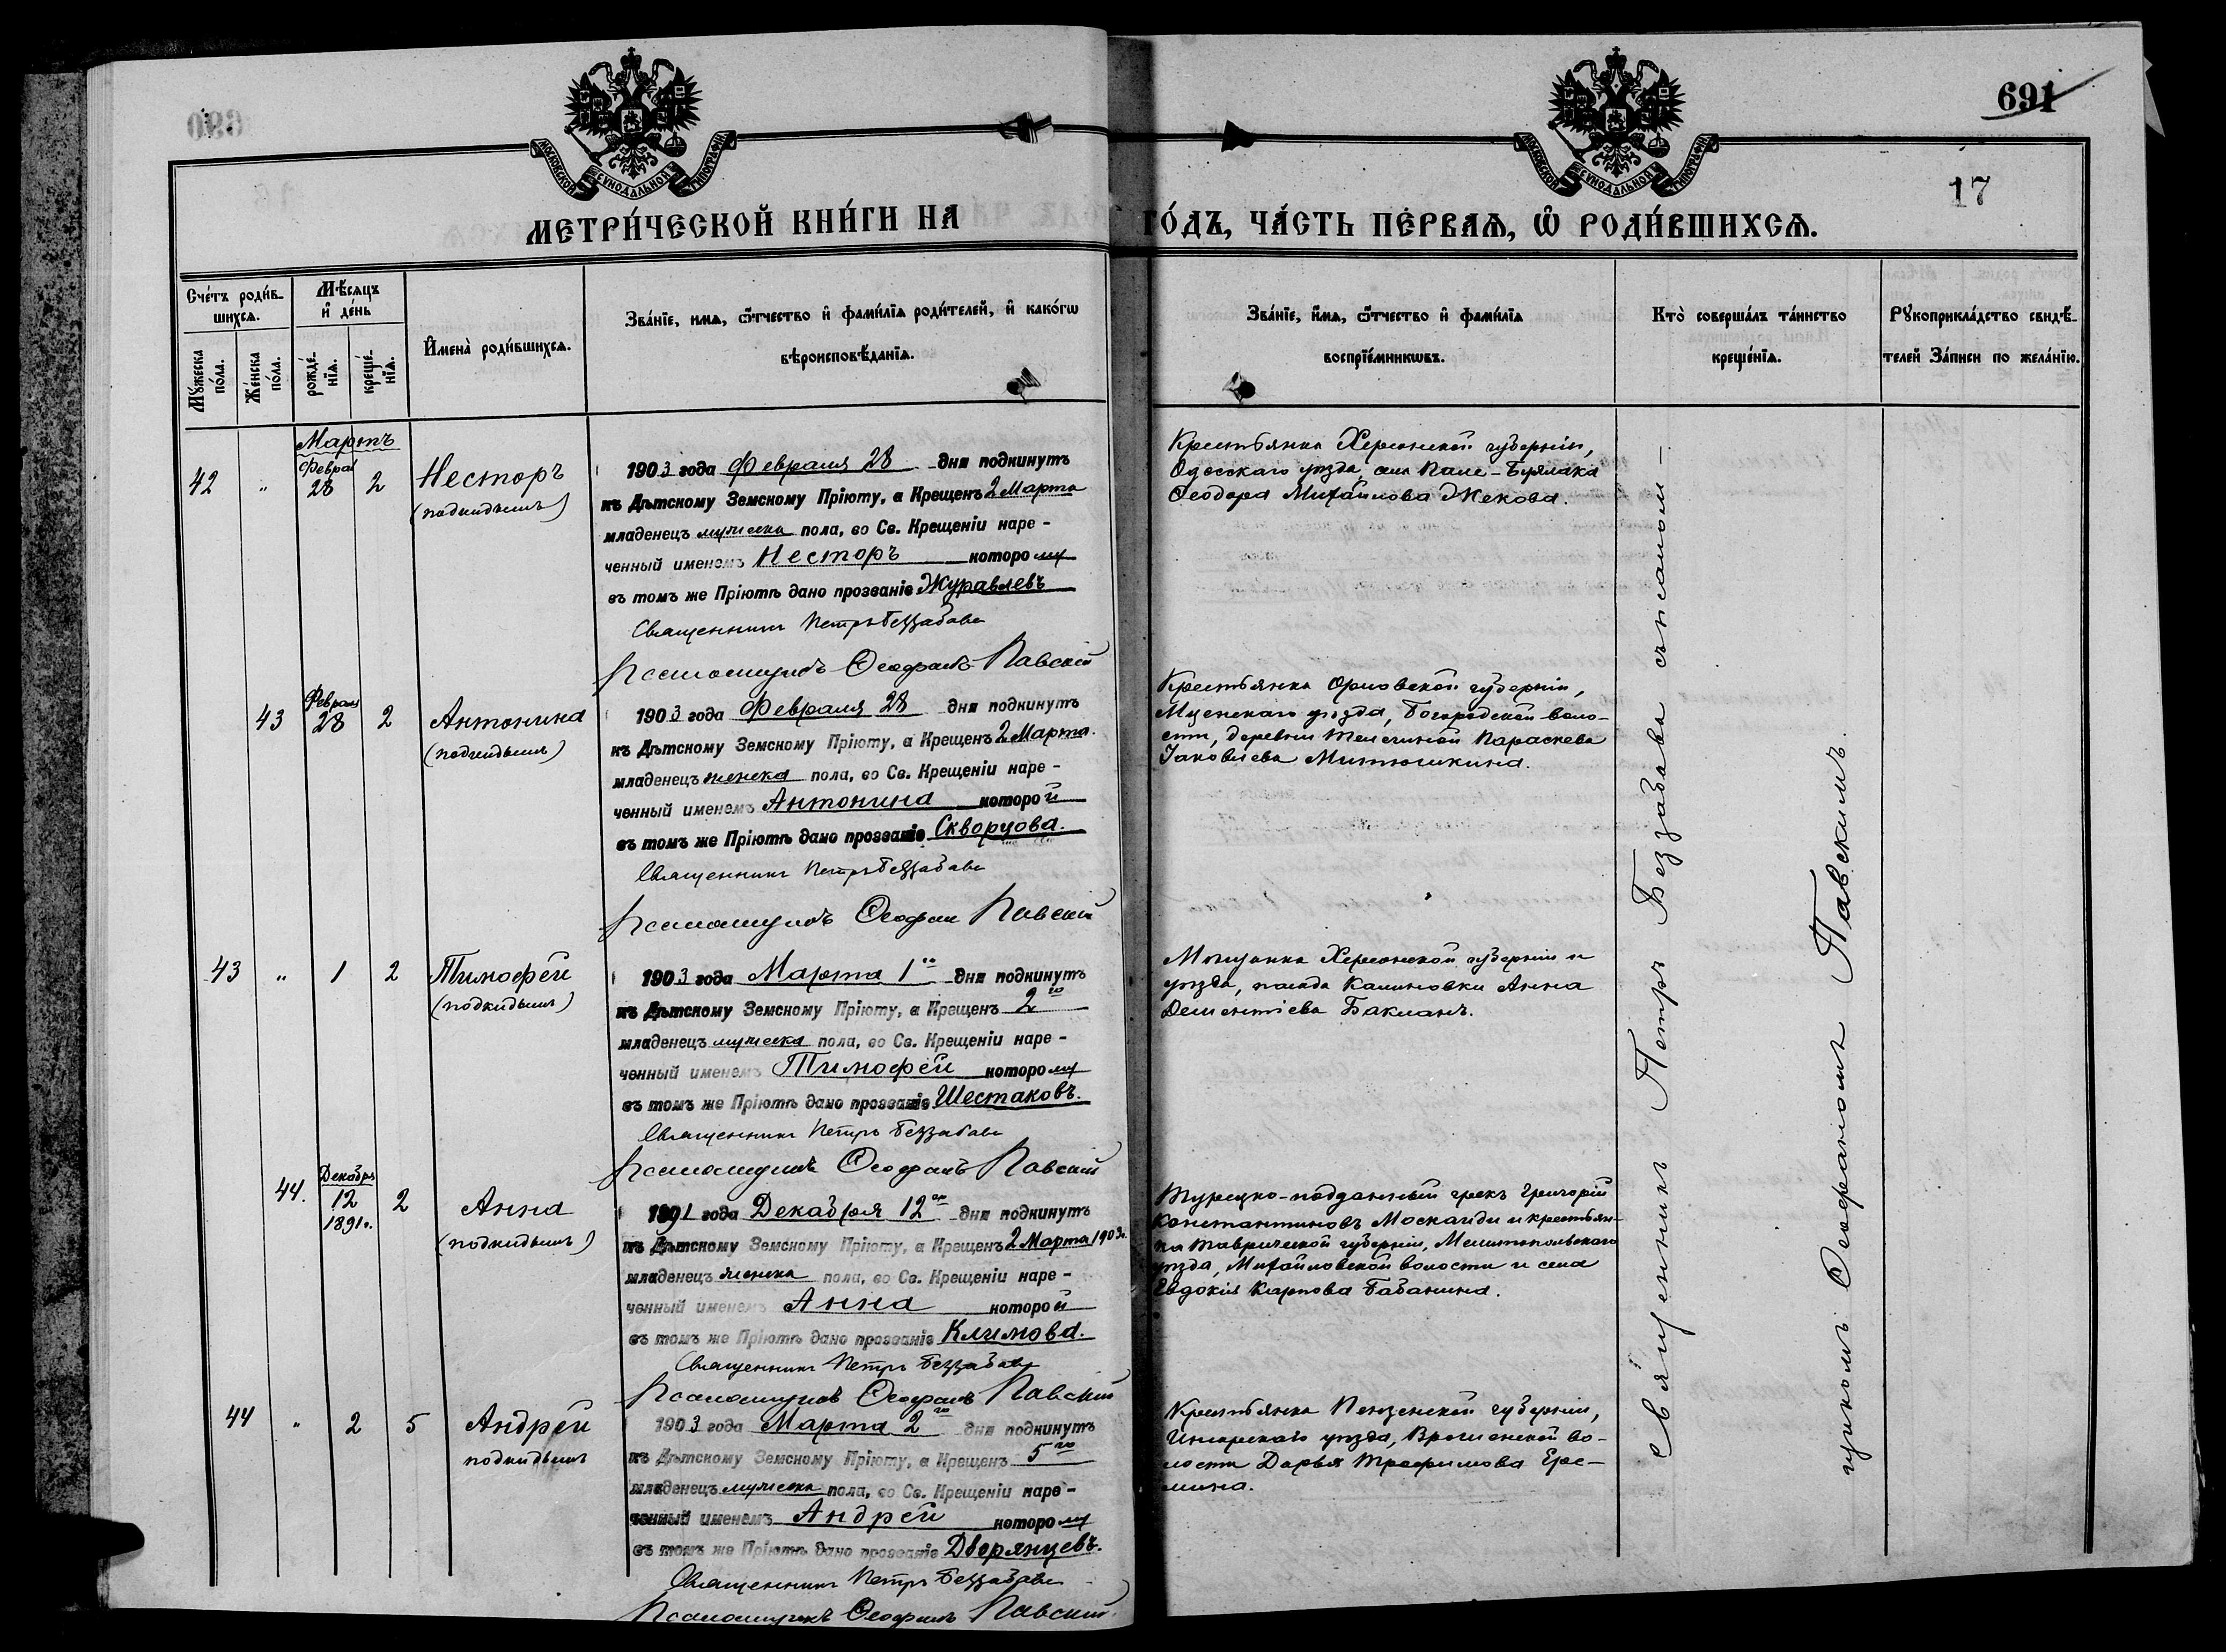 690
691
17
МОСКОВСКОЙ СѴНОДАЛЬНОЙ ТИПОГРАФІИ
МОСКОВСКОЙ СѴНОДАЛЬНОЙ ТИПОГРАФІИ
МЕТРИ́ЧЕСКОЙ КНИ́ГИ НА ГО́ДЪ, ЧА́СТЬ ПЕ́РВАѦ, Ѽ РОДИ́ВШИХСѦ.
Сче́тъ роди́в-
шихсѧ.
Мѣ́сѧцъ
и҆ де́нь
Мꙋ́жеска
по́ла.
Же́нска
по́ла.
рожде́-
нїѧ.
креще́-
нїѧ.
И҆мена̀ роди́вшихсѧ.
Зва́нїе, и҆́мѧ, ѻ҆́тчество и҆ фами́лїѧ роди́телей, и҆ како́гѡ
вѣроисповѣ́данїѧ.
Зва́нїе, и҆́мѧ, ѻ҆́тчество и҆ фами́лїѧ
воспрїе́мникѡвъ.
Кто̀ соверша́лъ та́инство
креще́нїѧ.
Рꙋкоприкла́дство свидѣ́-
телей за́писи по жела́нїю.
Мартъ
42 " Феврал 28 2 Несторъ
(подкидышъ)
1903 года Февраля 28 дня подкинутъ
къ Дѣтскому Земскому Пріюту, а Крещенъ 2 Марта
младенецъ мужеска пола, во Св. Крещеніи наре-
ченный именемъ Несторъ которому
въ томъ же Пріютѣ дано прозваніе Журавлевъ
Священникъ Петръ Беззабава
Псаломщикъ Ѳеофанъ Павскій
Крестьянка Херсонской губерніи,
Одесскаго уѣзда, Ѳеодора Михайлова Жекова.
43 Февраля 28 2 Антонина
(подкидышъ)
1903 года Февраля 28 дня подкинутъ
къ Дѣтскому Земскому Пріюту, а Крещенъ 2 Марта.
младенецъ женска пола, во Св. Крещеніи наре-
ченный именемъ Антонина которой
въ томъ же Пріютѣ дано прозваніе Скворцова.
Священникъ Петръ Беззабава
Псаломщикъ Ѳеофан Павскій
Крестьянка Орловской губерніи,
Мценскаго уѣзда, Богородской воло-
сти, деревни Телегиной Параскева
Іаковлева Митюшкина.
43 " 1 2 Тимофей
(подкидышъ)
1903 года Марта 1го дня подкинутъ
къ Дѣтскому Земскому Пріюту, а Крещенъ 2го
младенецъ мужеска пола, во Св. Крещеніи наре-
ченный именемъ Тимофей которому
въ томъ же Пріютѣ дано прозваніе Шестаковъ.
Священникъ Петръ Беззабава
Псаломщикъ Ѳеофанъ Павскій
Мѣщанка Херсонской губерніи и
уѣзда, посада Калиновки Анна
Дементіева Бакланъ.
44. Декабря 12 1891г. 2 Анна
(подкидышъ)
1891 года Декабря 12го дня подкинутъ
къ Дѣтскому Земскому Пріюту, а Крещенъ 2 Марта 1903г.
младенецъ женска пола, во Св. Крещеніи наре-
ченный именемъ Анна которой
въ томъ же Пріютѣ дано прозваніе Климова.
Священникъ Петръ Беззабава
Псаломщикъ Ѳеофанъ Павскій
Турецко-подданный грекъ Григорій
Константиновъ Москаиди и крестьян-
ка Таврической губерніи, Мелитопольскаго
уѣзда, Михайловской волости и села
Евдокія Карпова Бабанина.
44 " 2 5 Андрей
подкидышъ
1903 года Марта 2го дня подкинутъ
къ Дѣтскому Земскому Пріюту, а Крещенъ 5го
младенецъ мужеска пола, во Св. Крещеніи наре-
ченный именемъ Андрей которому
въ томъ же Пріютѣ дано прозваніе Дворянцевъ.
Священникъ Петръ Беззабава
Псаломщикъ Ѳеофанъ Павскій.
Крестьянка Пензенской губерніи,
Инсарскаго уѣзда, во-
лости Дарья Трофимова Ере-
мина.
Священникъ Петръ Беззабава съ псалом-
щикомъ Ѳеофаномъ Павскимъ.